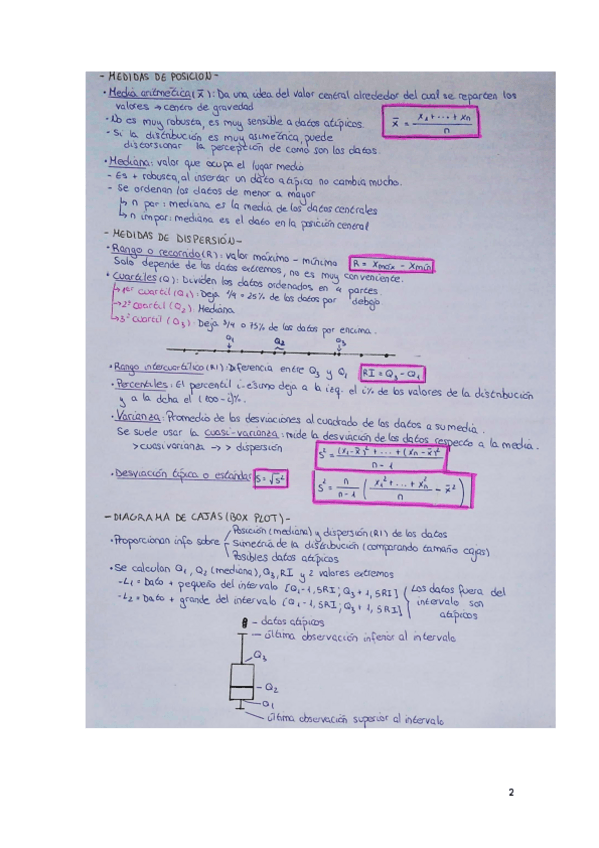 - MEDIDAS DE POSICIÓN -
• Media aritmética (x̄): Da una idea del valor central alrededor del cual se reparten los
valores → centro de gravedad
- No es muy robusta, es muy sensible a datos atípicos.
x̄ = (x₁ + ... + xn) / n
- Si la distribución es muy asimétrica, puede
distorsionar la percepción de como son los datos.
• Mediana: valor que ocupa el lugar medio
- Es + robusta, al insertar un dato atípico no cambia mucho.
- Se ordenan los datos de menor a mayor
↳ n par: mediana es la media de los datos centrales
↳ n impar: mediana es el dato en la posición central
- MEDIDAS DE DISPERSIÓN -
• Rango o recorrido (R): valor máximo - mínimo
R = Xmáx - Xmín
Solo depende de los datos extremos, no es muy conveniente.
• Cuartiles (Q): Dividen los datos ordenados en 4 partes.
↳ 1er cuartil (Q₁): Deja 1/4 = 25% de los datos por debajo
↳ 2º cuartil (Q₂): Mediana
↳ 3º cuartil (Q₃): Deja 3/4 o 75% de los datos por encima.
Q₁ Q₂ Q₃
• Rango intercuartílico (RI): Diferencia entre Q₃ y Q₁ RI = Q₃ - Q₁
• Percentiles: El percentil i-ésimo deja a la izq. el i% de los valores de la distribución
y a la dcha el (100 - i)%.
• Varianza: Promedio de las desviaciones al cuadrado de los datos a su media.
Se suele usar la cuasi-varianza: mide la desviación de los datos respecto a la media.
> cuasivarianza → > dispersión
S² = ((x₁ - x̄)² + ... + (xn - x̄)²) / (n - 1)
• Desviación típica o estándar S = √S²
S² = n / (n - 1) ((x₁² + ... + xn²) / n - x̄²)
- DIAGRAMA DE CAJAS (BOX PLOT) -
Posición (mediana) y dispersión (RI) de los datos
• Proporcionan info sobre Simetría de la distribución (comparando tamaño cajas)
Posibles datos atípicos
• Se calculan Q₁, Q₂ (mediana), Q₃, RI y 2 valores extremos
- L₁ = Dato + pequeño del intervalo [Q₁ - 1,5RI; Q₃ + 1,5RI] Los datos fuera del
- L₂ = Dato + grande del intervalo [Q₁ - 1,5RI; Q₃ + 1,5RI] intervalo son
atípicos
- datos atípicos
última observación inferior al intervalo
Q₃
- Q₂
Q₁
última observación superior al intervalo
2